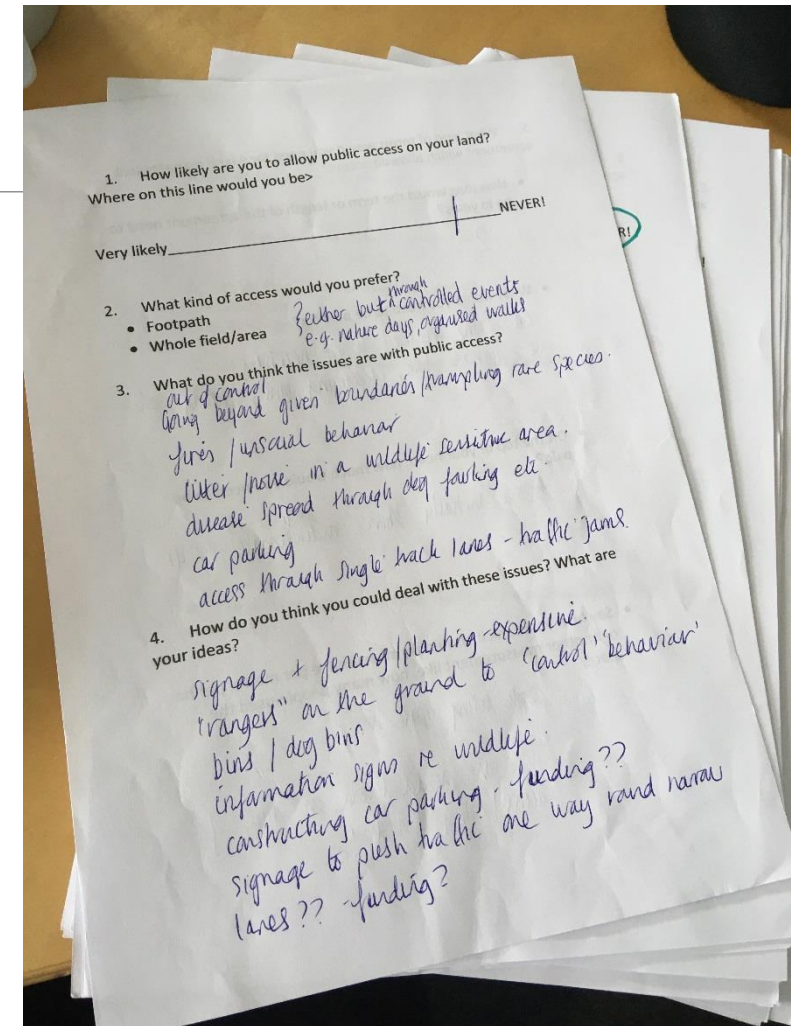 1. How likely are you to allow public access on your land?
Where on this line would you be>
Very likely NEVER!
R!
2. What kind of access would you prefer?
• Footpath
• Whole field/area
{either but through controlled events
e.g. nature days, organised walks
3. What do you think the issues are with public access?
out of control
Going beyond given boundaries/trampling rare species.
fires / unsocial behaviour
litter / noise in a wildlife sensitive area.
disease spread through dog fowling etc.
car parking
access through single track lanes - traffic jams.
4. How do you think you could deal with these issues? What are
your ideas?
signage + fencing/planting - expensive.
"rangers" on the ground to 'control' 'behaviour'
bins / dog bins
information signs re wildlife.
constructing car parking - funding??
signage to push traffic one way round narrow
lanes?? - funding?